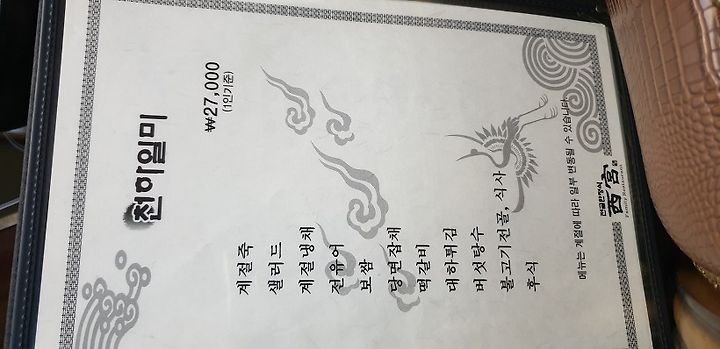 천하일미
₩27,000
(1인기준)
계절죽
샐러드
계절냉채
전유어
보쌈
당면잡채
떡갈비
대하튀김
버섯탕수
불고기전골, 식사
후식
메뉴는 계절에 따라 일부 변동될 수 있습니다.
전골한정식
西宮
Family Restaurant